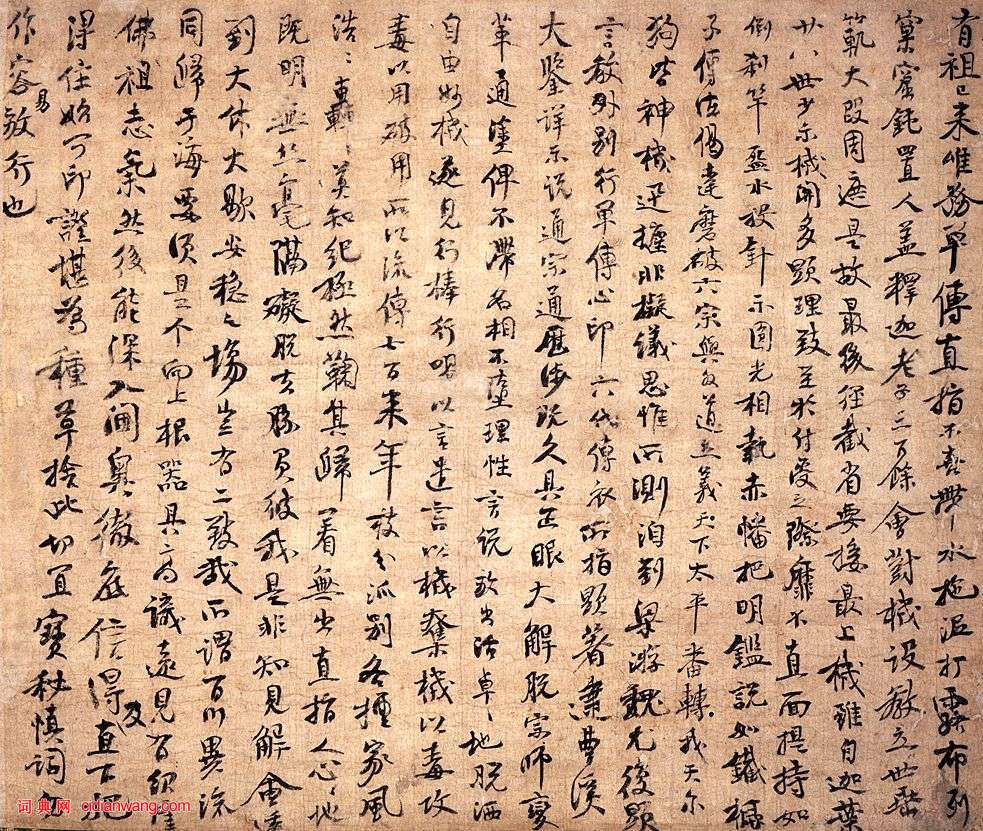 有祖已来唯務單傳直指不喜帶水拖泥打露布列
窠窟鈍置人盖釋迦老子三百餘會對機設教立世垂
範大段周遮是故最後徑截省要接最上機雖自迦葉
廿八世少示機關多顯理致至於付受之際靡不直面提持如
倒刹竿盋水投針示圓光相執赤幡把明鑑説如鐵橛
子傳法偈達磨破六宗與外道立義天下太平番轉我天尔
狗皆神機迅捷非擬議思惟所測洎到梁游魏尤復顯
言教外別行單傳心印六代傳衣所指顯著逮曹溪
大鑒詳示說通宗通歷涉既久具正眼大解脱宗師變
革通塗俾不滯名相不墮理性言説放出活卓〻地脱洒
自由妙機遂見行棒行喝以言遣言以機奪機以毒攻
毒以用破用所以流傳七百来年枝分派別各擅家風
浩〻轟〻莫知紀極然鞠其歸着無出直指人心〻地
既明無絲毫隔礙脱去勝負彼我是非知見解會透
到大休大歇安穩之場豈有二致哉所謂百川異流
同歸于海要須是个向上根器具高識遠見有紹隆
佛祖志氣然後能深入閫奧徹底信得及直下把
得住始可印證堪為種草捨此切宜寳秘慎詞勿
作容易放行也
词典网 cdianwang.com